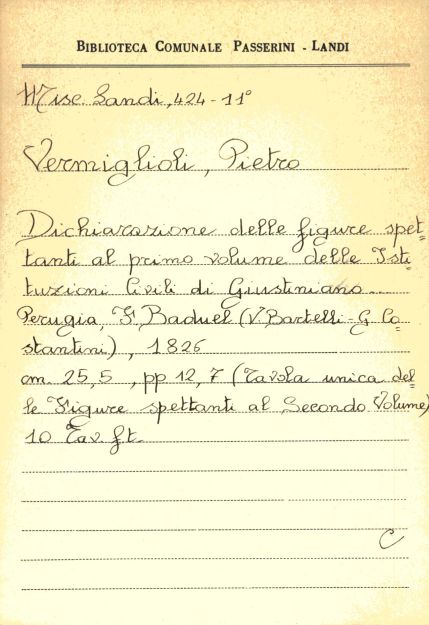 BIBLIOTECA COMUNALE PASSERINI - LANDI
Misc. Landi, 424 - 11°
Vermiglioli, Pietro
Dichiarazione delle figure spet-
tanti al primo volume delle Isti
tuzioni Civili di Giustiniano...
Perugia, F. Baduel (V. Bartelli - G. Co-
stantini), 1826
cm. 25,5, pp 12, 7 (Tavola unica del-
le Figure spettanti al Secondo Volume)
10 Tav. f.t.
C